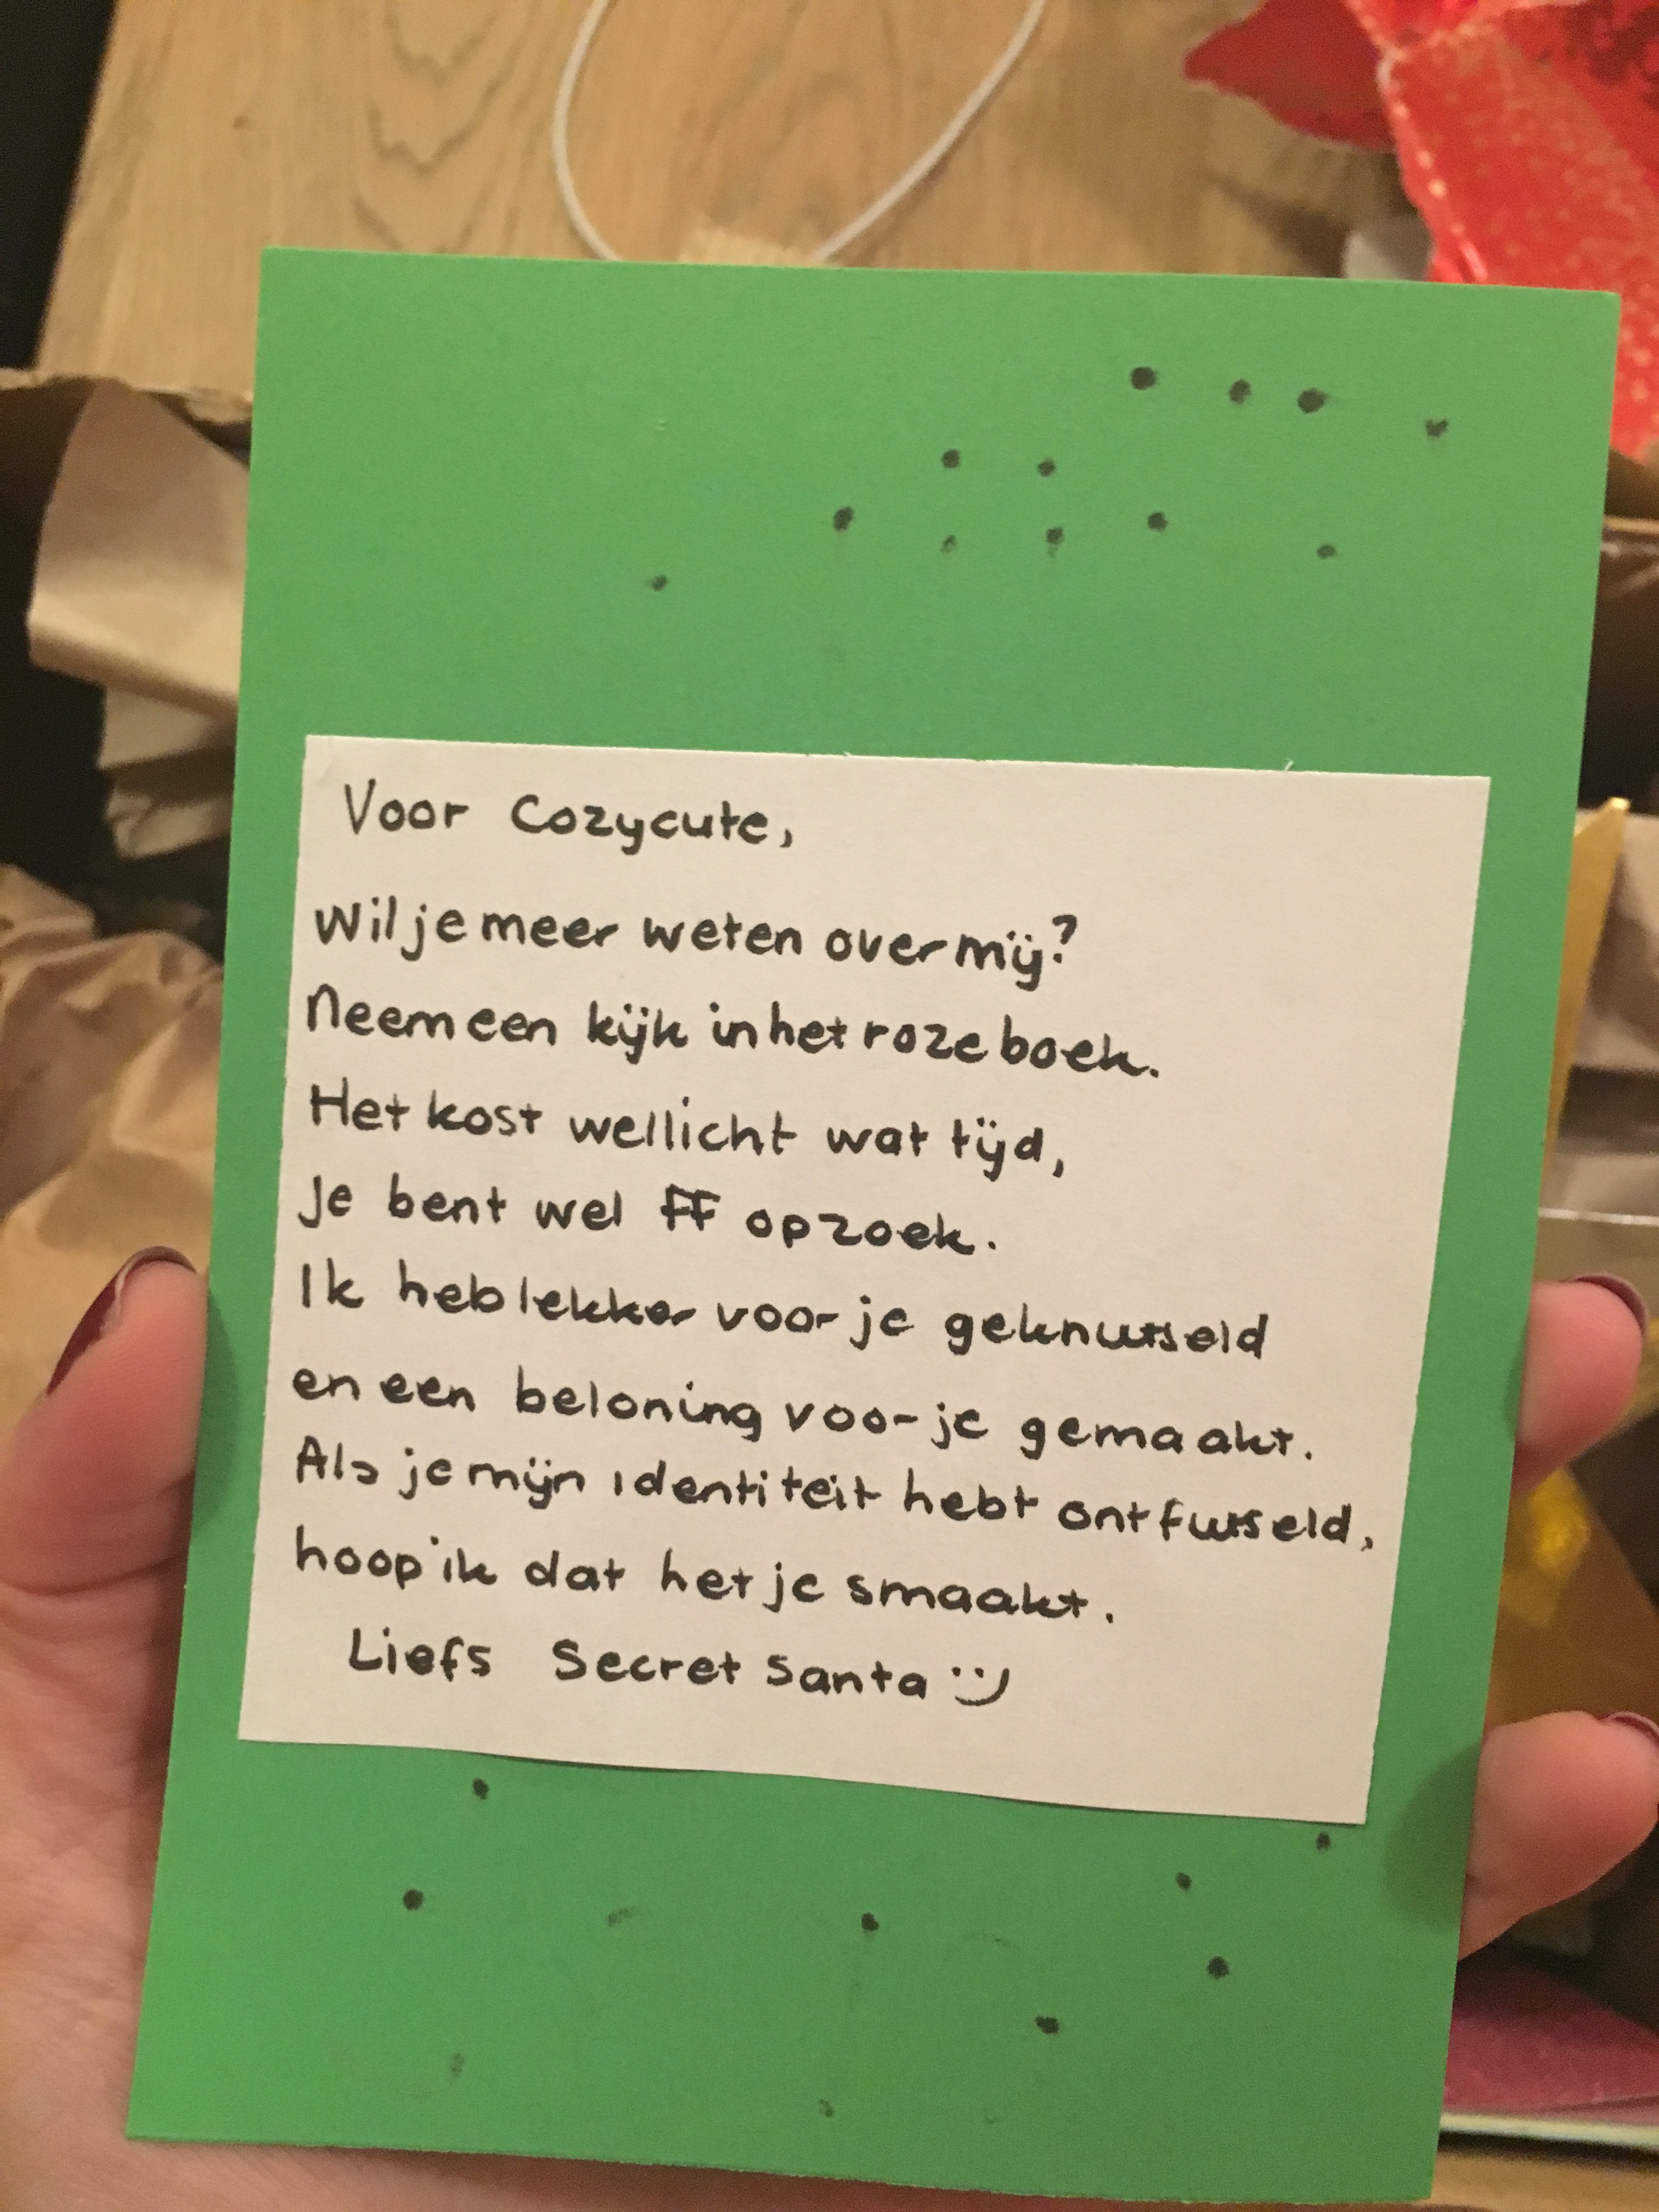 Voor Cozycute,
Wil je meer weten over mij?
Neem een kijk in het roze boek.
Het kost wellicht wat tijd,
Je bent wel FF opzoek.
Ik heb lekker voor je geknutseld
en een beloning voor je gemaakt.
Als je mijn identiteit hebt ontfutseld,
hoop ik dat het je smaakt.
Liefs Secret Santa :)